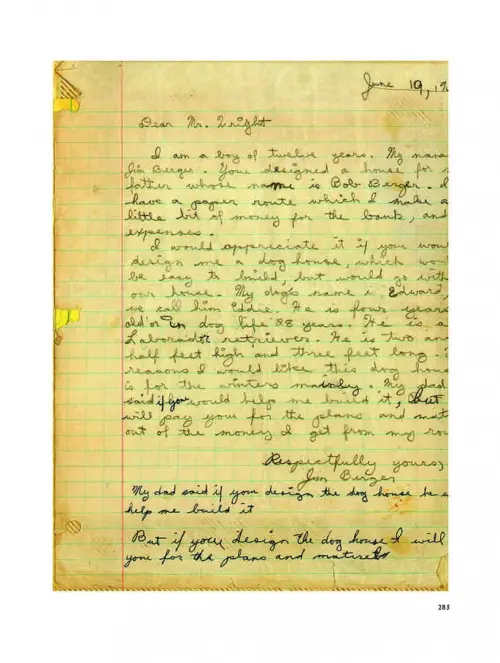 June 19, 19
Dear Mr. Wright
I am a boy of twelve years. My name
Jim Berger. You designed a house for m
father whose name is Bob Berger. I
have a paper route which I make a
little bit of money for the bank, and
expenses.
I would appreciate it if you woul
design me a dog house, which woul
be easy to build, but would go with
our house. My dog's name is Edward,
we call him Eddie. He is four years
old or in dog life 28 years. He is a
Laborador retriever. He is two and
half feet high and three feet long.
reasons I would like this dog hous
is for the winters mainly. My dad
said if you would help me build it, But
will pay you for the plans and mat
out of the money I get from my rou
Respectfully yours,
Jim Berger
My dad said if you design the dog house he w
help me build it
But if you design the dog house I will
you for the plans and
285